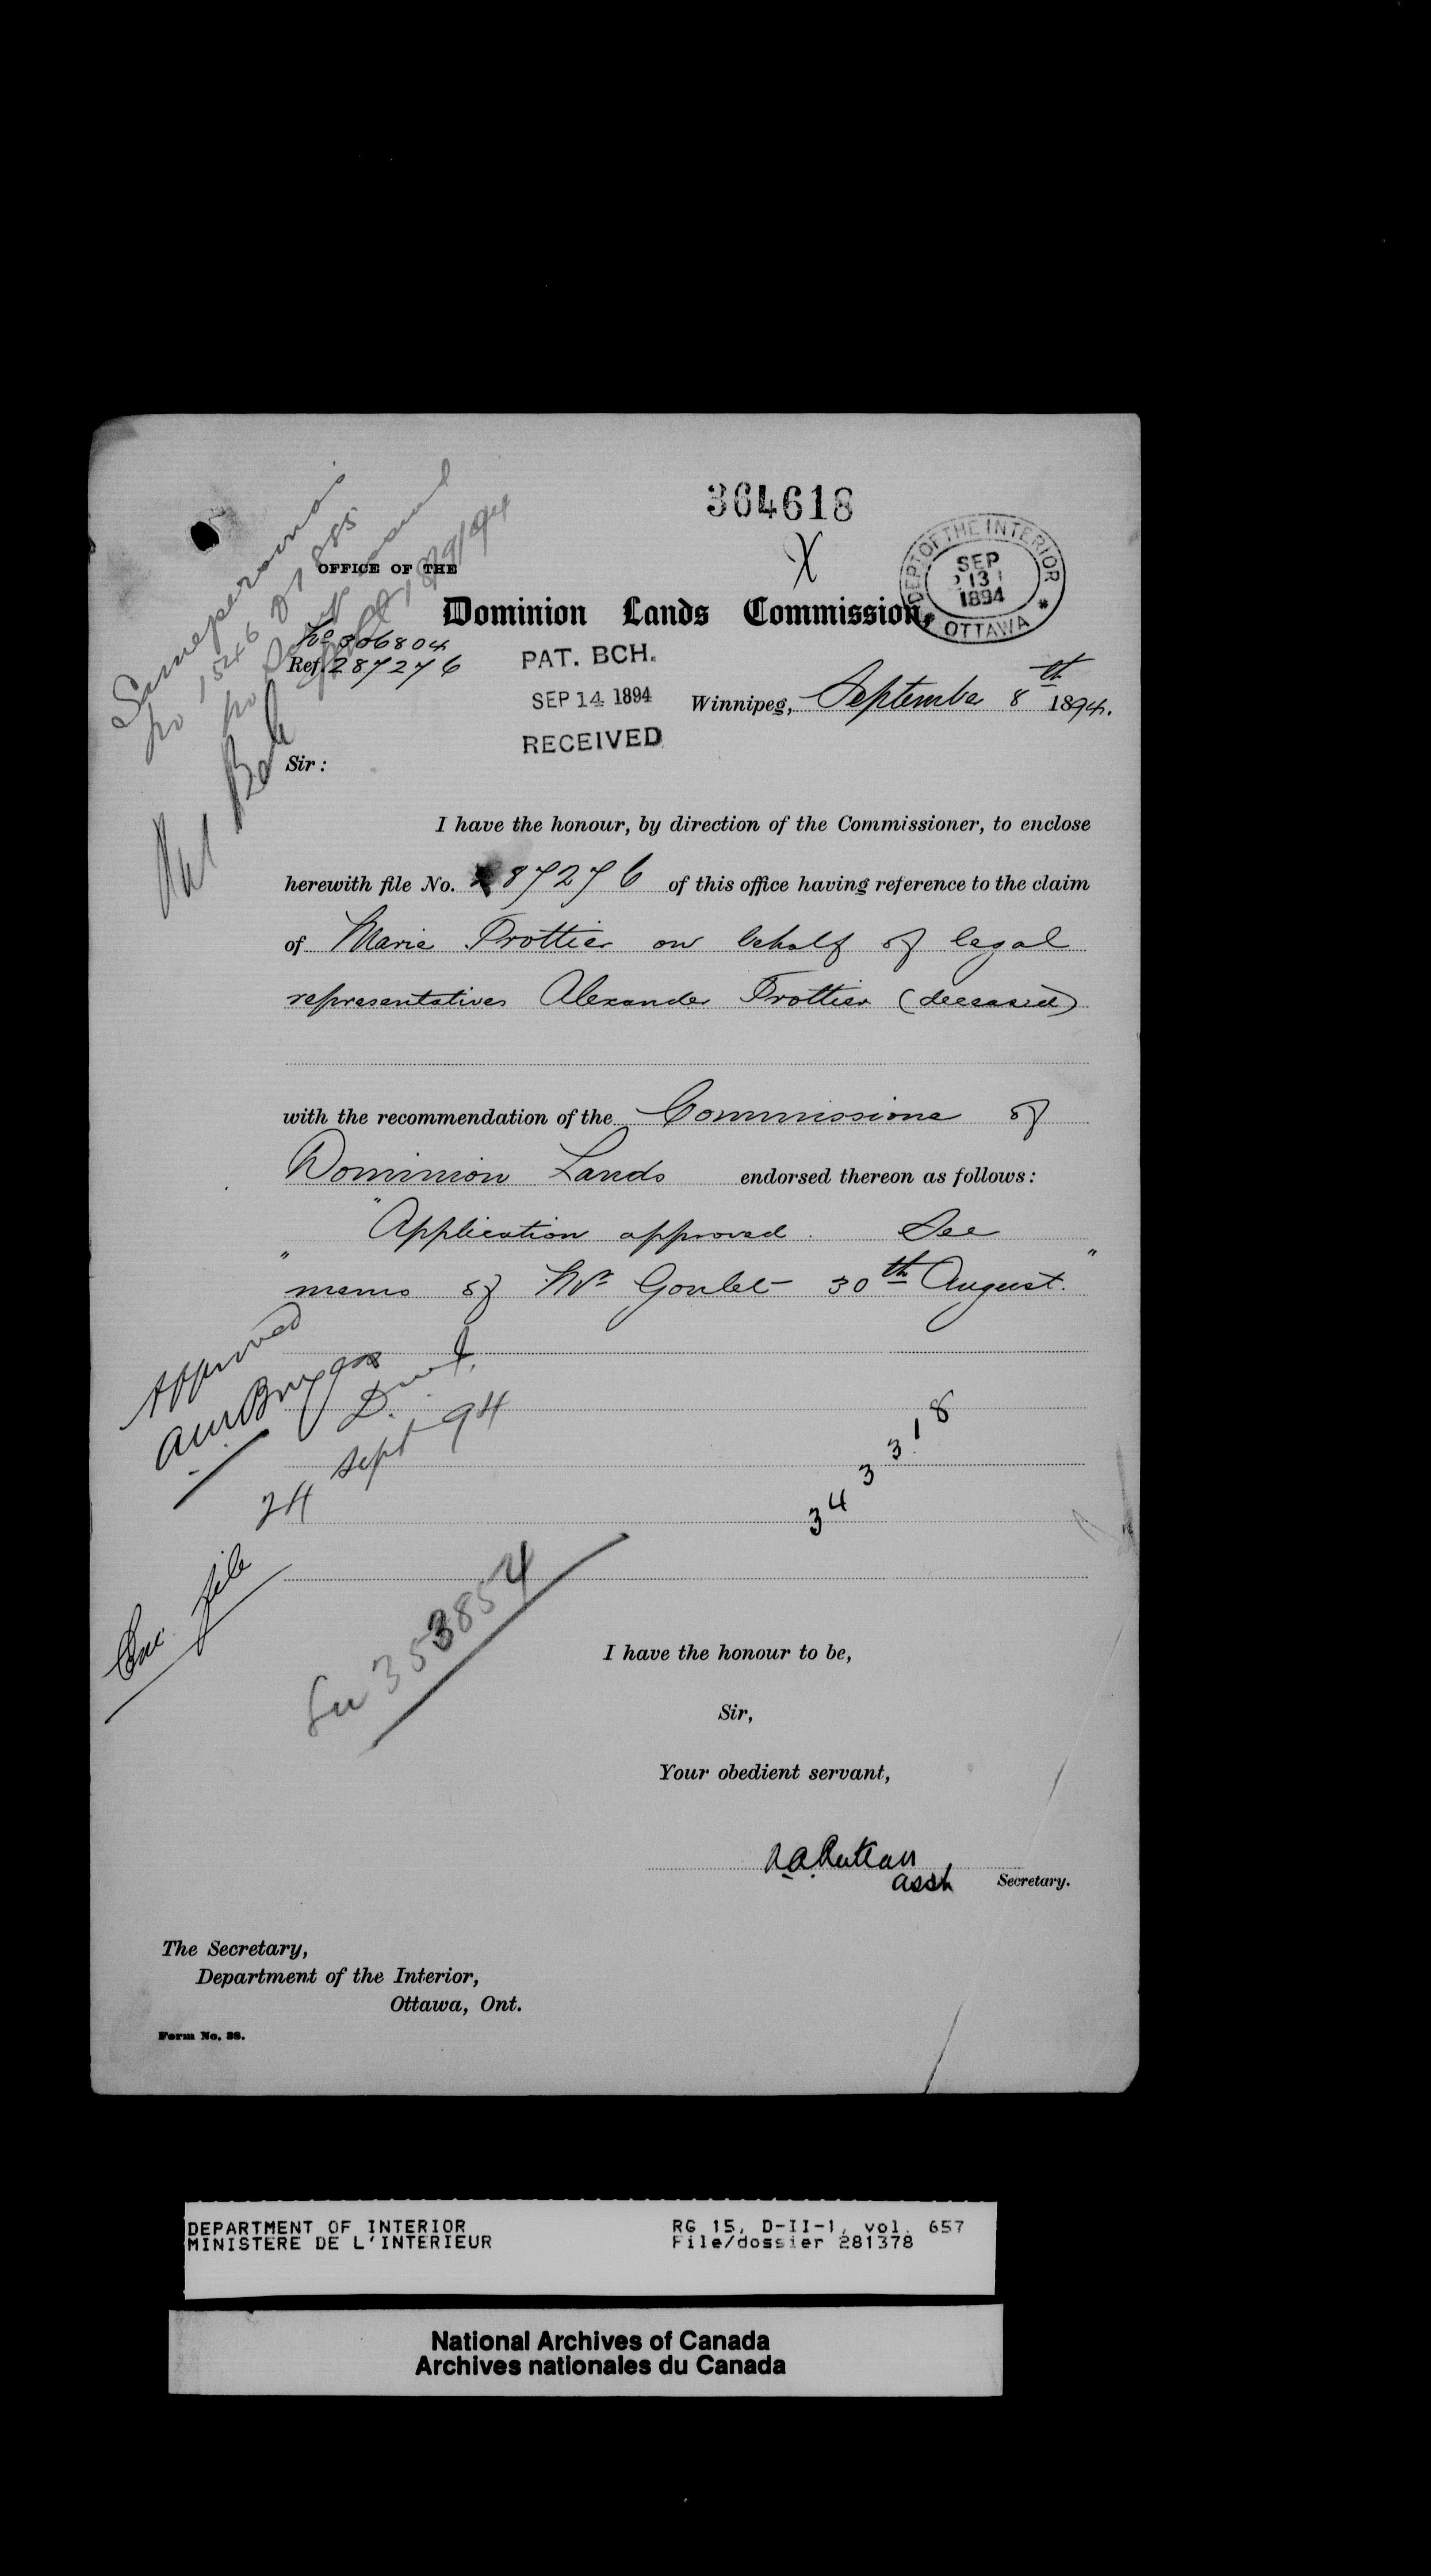 364618
X
DEPT OF THE INTERIOR
SEP
13
1894
OTTAWA
OFFICE OF THE
Dominion Lands Commission,
No 306804
Ref. 287276
PAT. BCH.
SEP 14 1894
RECEIVED
Winnipeg, September 8th 1894.
Same person as
no 1546 of 1885
Sir:
I have the honour, by direction of the Commissioner, to enclose
herewith file No. 287276 of this office having reference to the claim
of Marie Trottier on behalf of legal
representatives Alexander Trottier (deceased)
with the recommendation of the Commissioner of
Dominion Lands endorsed thereon as follows:
"Application approved. See
" memo of Mr Goulet 30th August. "
Approved
24 Sept 94
343318
file
353854
I have the honour to be,
Sir,
Your obedient servant,
Asst Secretary.
The Secretary,
Department of the Interior,
Ottawa, Ont.
Form No. 38.
DEPARTMENT OF INTERIOR
MINISTERE DE L'INTERIEUR
RG 15, D-II-1, vol. 657
File/dossier 281378
National Archives of Canada
Archives nationales du Canada